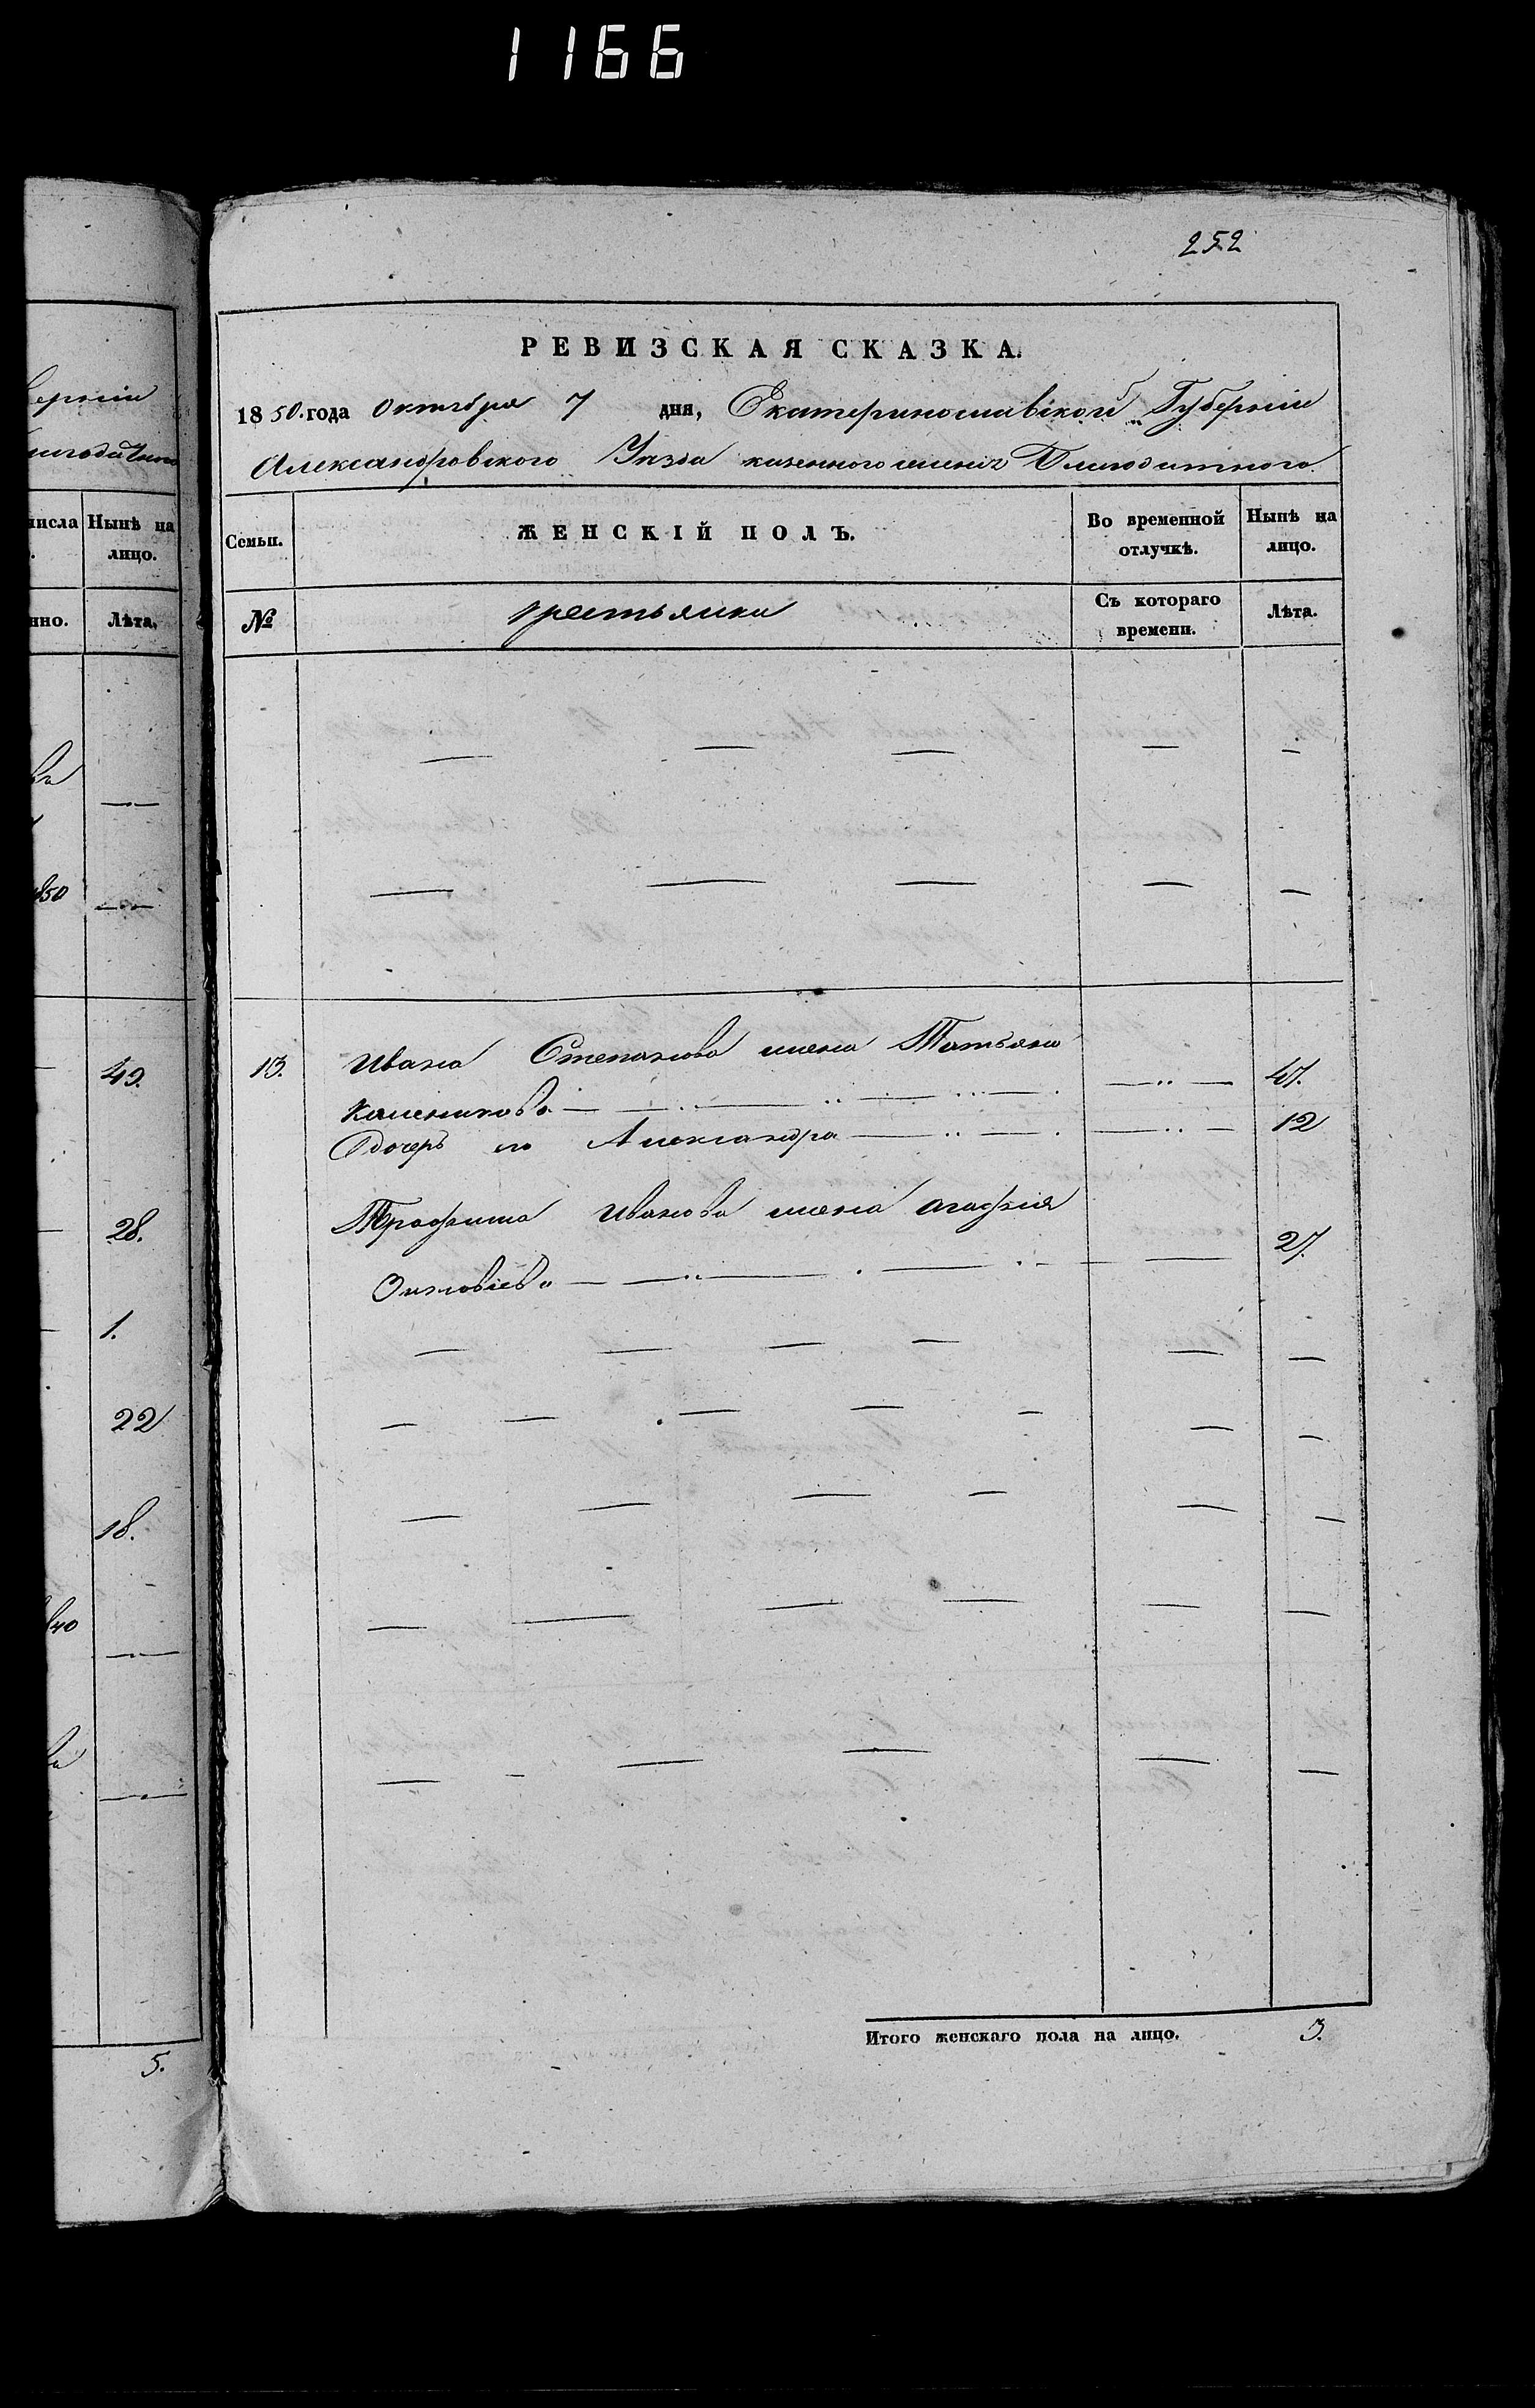 1166
252
РЕВИЗСКАЯ СКАЗКА.
1850. года Октября 7 дня, Екатеринославской Губернии
Александровского Уезда казенного имения Благодатного
Семьи.
ЖЕНСКІЙ ПОЛЪ.
Во временной отлучкѣ.
Нынѣ на лицо.
№
крестьянки
Съ котораго времени.
Лѣта.
13. Ивана Степанова жена Татьяна
47.
Дочерь его Александра 12
Трофима Иванова жена Агафия
Зиновиева 27.
Итого женскаго пола на лицо. 3.
верніи
числа Нынѣ на лицо.
Лѣта.
ва
850
49.
28.
1.
22
18.
840
5.